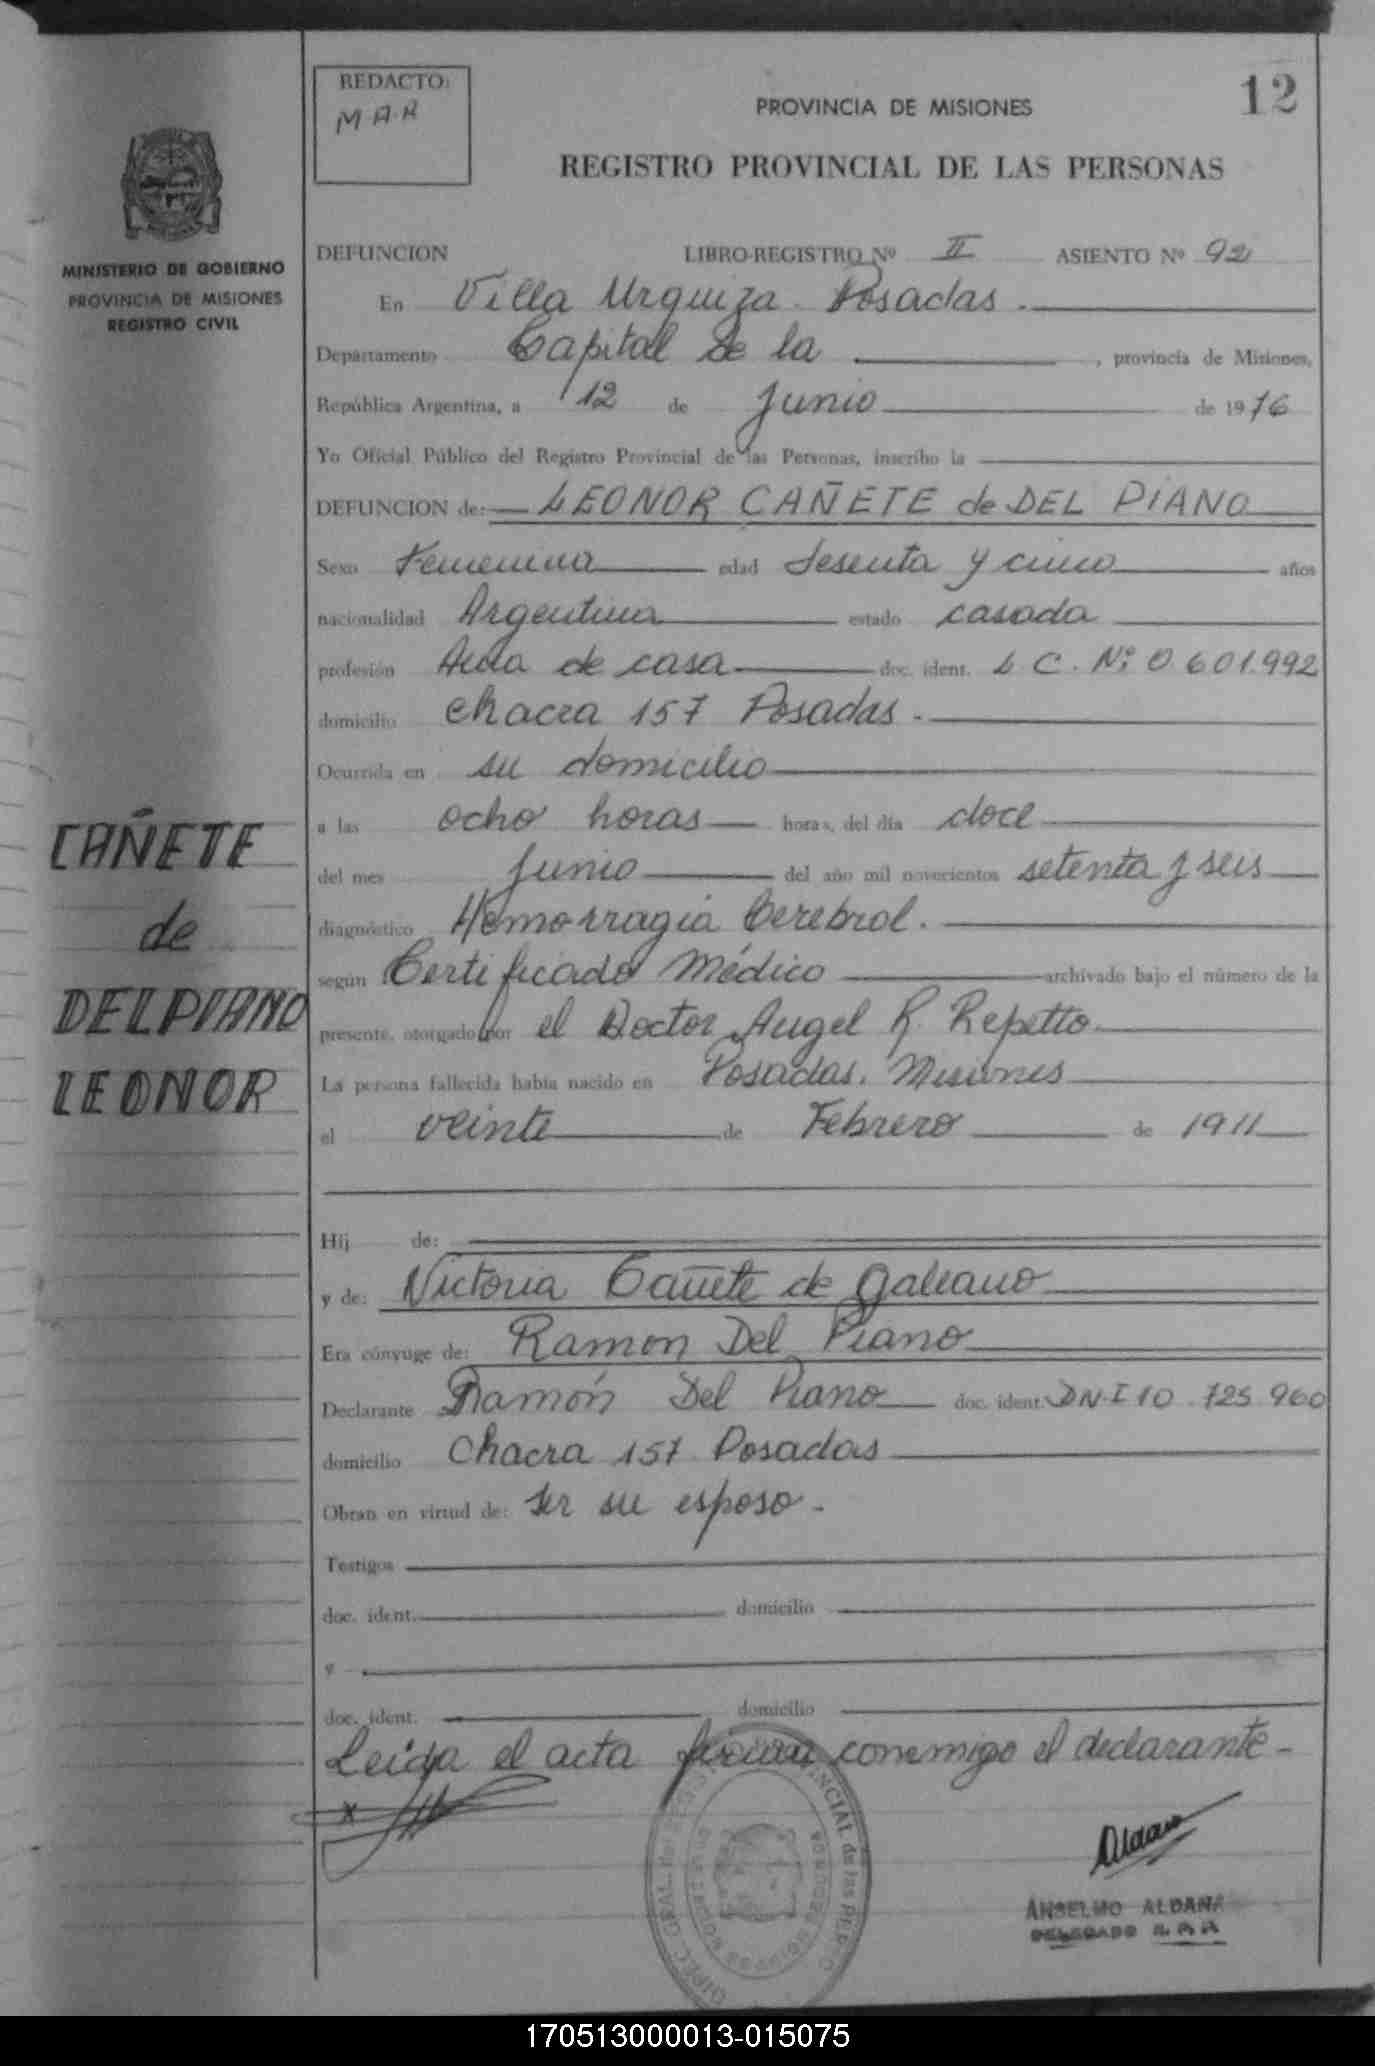 REDACTO:
M A.R
12
PROVINCIA DE MISIONES
REGISTRO PROVINCIAL DE LAS PERSONAS
MINISTERIO DE GOBIERNO
PROVINCIA DE MISIONES
REGISTRO CIVIL
DEFUNCION LIBRO-REGISTRO Nº II ASIENTO Nº 92
En Villa Urquiza - Posadas.
Departamento Capital de la , provincia de Misiones,
República Argentina, a 12 de Junio de 1976
Yo Oficial Público del Registro Provincial de las Personas, inscribo la
DEFUNCION de: LEONOR CAÑETE de DEL PIANO
Sexo Femenina edad Sesenta y cinco años
nacionalidad Argentina estado casada
profesión Ama de casa doc. ident. L C. Nº 0.601.992
domicilio Chacra 157 Posadas.
Ocurrida en su domicilio
a las ocho horas horas, del día doce
del mes Junio del año mil novecientos setenta y seis
diagnóstico Hemorragia Cerebral.
según Certificado Médico archivado bajo el número de la
presente, otorgado por el Doctor Angel R. Repetto.
La persona fallecida había nacido en Posadas, Misiones
el veinte de Febrero de 1911
CAÑETE
de
DEL PIANO
LEONOR
Hij de:
y de: Victoria Cañete de Galeano
Era cónyuge de: Ramon Del Piano
Declarante Ramón Del Piano doc. ident. DN.I 10.725.960
domicilio Chacra 157 Posadas
Obran en virtud de: Ser su esposo.
Testigos
doc. ident. domicilio
y
doc. ident. domicilio
Leida el acta firman conmigo el declarante-
x
Aldana
ANSELMO ALDANA
DELEGADO
170513000013-015075